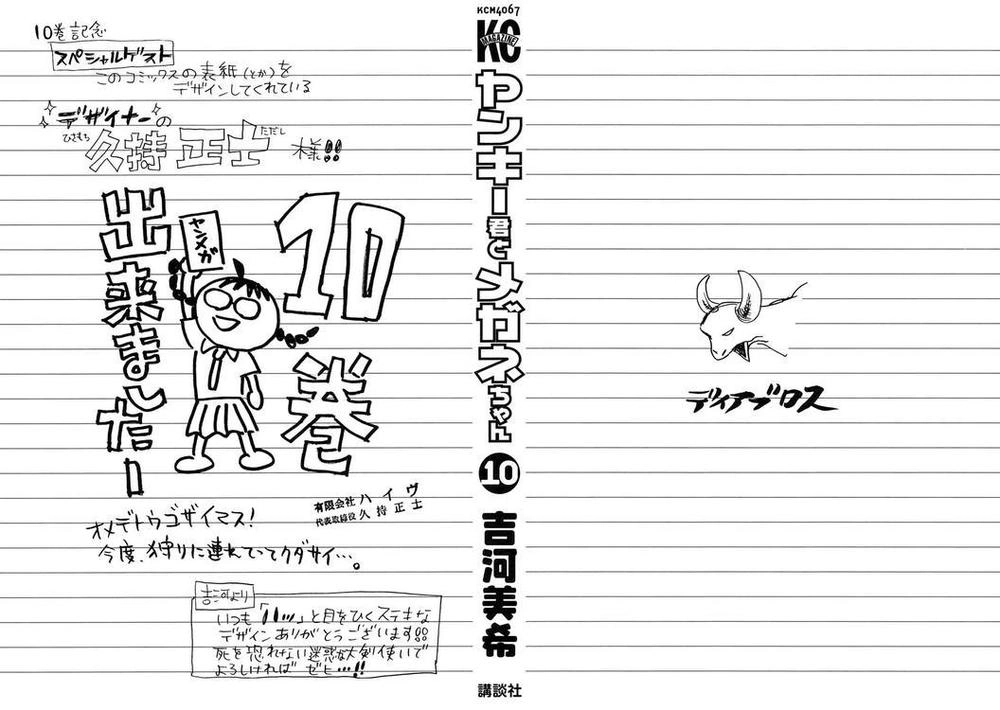 10巻記念
スペシャルゲスト
このコミックスの表紙(とか)を
デザインしてくれている
デザイナーの
ひさもち ただし
久持 正士 様!!
10巻
出来ましたー
ヤンメガ
有限会社 ハイヴ
代表取締役 久持 正士
オメデトウゴザイマス!
今度、狩りに連れてってクダサイ…。
吉河より
いつも「ハッ」と目をひくステキな
デザインありがとうございます!!
死を恐れない迷惑な大剣使いで
よろしければ ゼヒ…!!
KCM4067
KC
MAGAZINE
ヤンキー君とメガネちゃん
10
吉河美希
講談社
ディアブロス